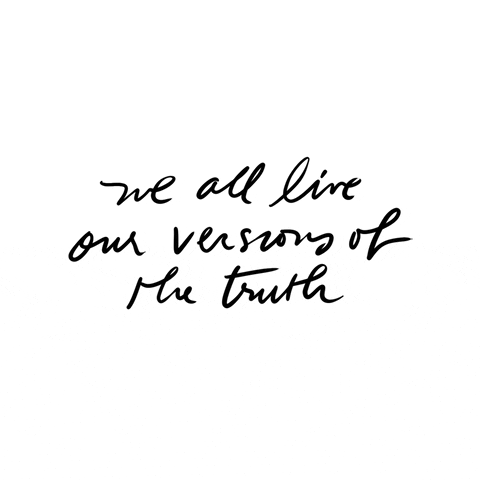 we all live
our versions of
the truth